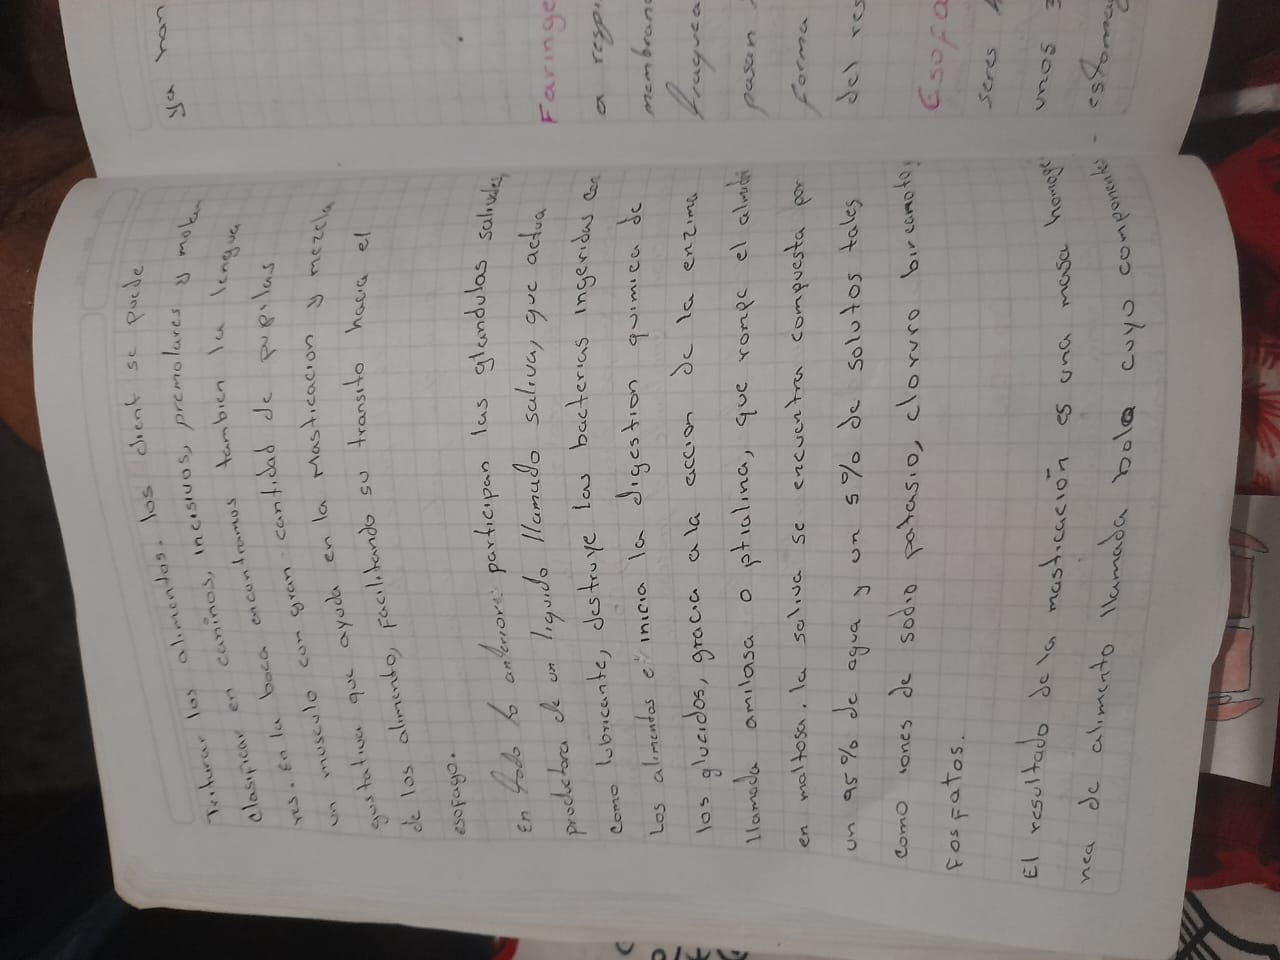 Triturar los alimentos. los dient se puede
clasificar en caninos, incisivos, premolares y mola
res. En la boca encontramos tambien la lengua
un musculo con gran cantidad de pupilas
gustativa que ayuda en la Masticacion y mezcla
de los alimento, facilitando su transito hacia el
esofago.
En todo lo anteriore participan las glandulas salivales,
productora de un liquido llamado saliva, que actua
como lubricante, destruye las bacterias ingeridas con
los alimentos e inicia la digestion quimica de
los glucidos, gracia a la accion de la enzima
llamada amilasa o ptialina, que rompe el almidi
en maltosa. la saliva se encuentra compuesta por
un 95% de agua y un 5% de solutos tales
como iones de sodio patasio, cloruro bircarnoto,
fosfatos.
El resultado de la masticación es una masa homoge
nea de alimento llamada bola cuyo componentes
ya han
Faringe
a respi
membran
fragua
pasan
forma
del res
Esofa
seres
unos 3
estomag